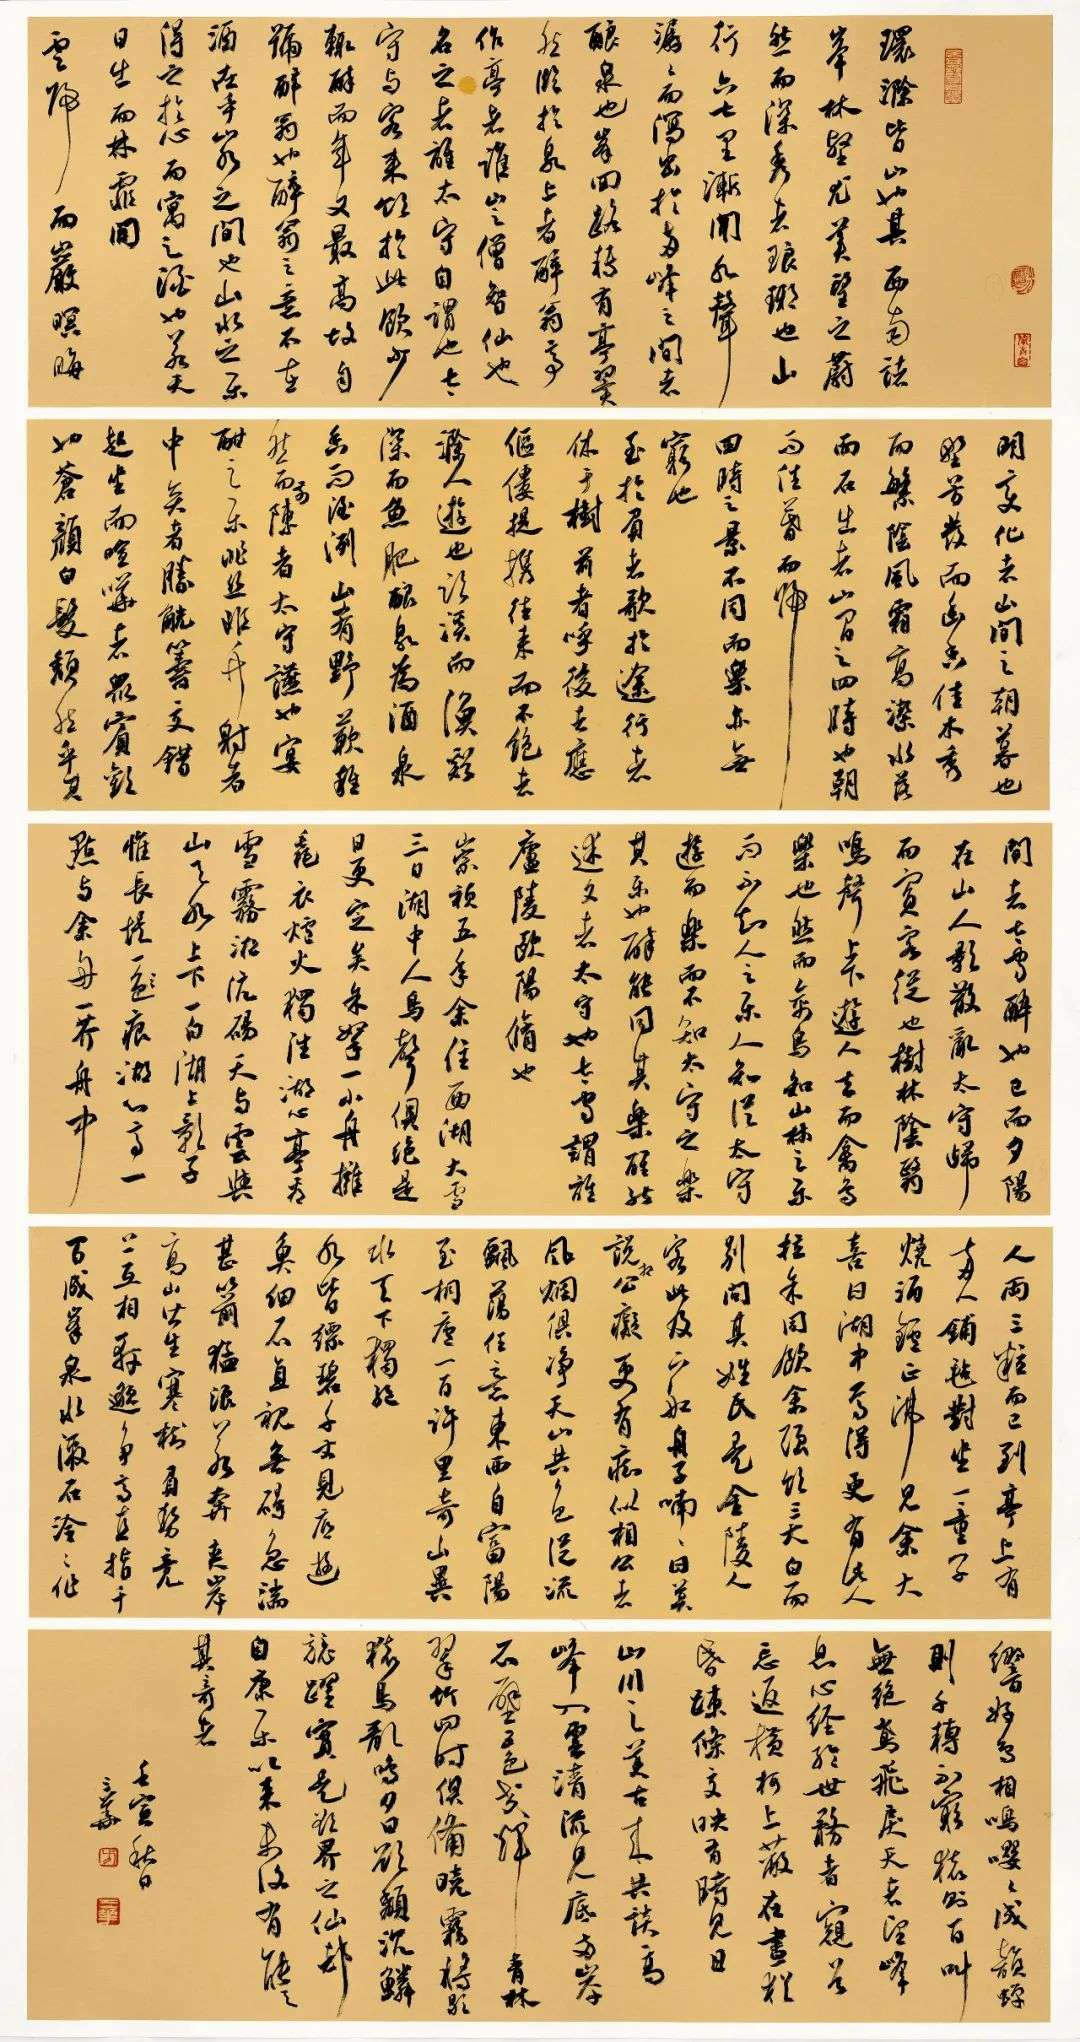 環滁皆山也其西南諸
峯林壑尤美望之蔚
然而深秀者琅琊也山
行六七里漸聞水聲
潺々而瀉出於兩峰之間者
釀泉也峯回路轉有亭翼
然臨於泉上者醉翁亭
作亭者誰山之僧智仙也
名之者誰太守自謂也太
守与客來飲於此飲少
輒醉而年又最高故自
號醉翁也醉翁之意不在
酒在乎山水之間也山水之樂
得之於心而寓之酒也若夫
日出而林霏開
雲歸而巖暝晦
明變化者山間之朝暮也
野芳發而幽香佳木秀
而繁陰風霜高潔水落
而石出者山間之四時也朝
而往暮而歸
四時之景不同而樂亦無
窮也
至於負者歌於途行者
休于樹前者呼後者應
傴僂提攜往來而不絕者
滁人遊也臨溪而漁谿
深而魚肥釀泉為酒泉
香而酒洌山肴野蔌雜
然而前陳者太守讌也宴
酣之樂非丝非竹射者
中奕者勝觥籌交錯
起坐而喧嘩者眾賓歡
也蒼顏白髮頹然乎其
間者太守醉也已而夕陽
在山人影散亂太守歸
而賓客從也樹林陰翳
鳴聲上下遊人去而禽鳥
樂也然而禽鳥知山林之樂
而不知人之樂人知從太守
遊而樂而不知太守之樂
其樂也醉能同其樂醒能
述文者太守也太守謂誰
廬陵歐陽脩也
崇禎五年余住西湖大雪
三日湖中人鳥聲俱絕是
日更定矣余拏一小舟擁
毳衣爐火獨往湖心亭看
雪霧凇沆碭天与雲與
山與水上下一白湖上影子
惟長堤一痕湖心亭一
點与余舟一芥舟中
人两三粒而已到亭上有
两人鋪氈對坐一童子
燒酒爐正沸見余大
喜曰湖中焉得更有此人
拉余同飲余强飲三大白而
别問其姓氏是金陵人
客此及下船舟子喃々曰莫
說相公癡更有癡似相公者
風烟俱净天山共色從流
飄蕩任意東西自富陽
至桐廬一百許里奇山異
水天下獨絕
水皆縹碧千丈見底游
魚細石直視無礙急湍
甚箭猛浪若奔夾岸
高山皆生寒樹負勢競
上互相軒邈爭高直指千
百成峯泉水激石泠々作
響好鳥相鳴嚶々成韻蟬
則千轉不窮猿則百叫
無絕鳶飛戾天者望峰
息心經綸世務者窺谷
忘返橫柯上蔽在晝猶
昏疎條交映有時見日
山川之美古來共談高
峰入雲清流見底两岸
石壁五色交輝青林
翠竹四时俱備曉霧将歇
猿鳥亂鳴夕日欲頹沉鱗
競躍實是欲界之仙都
自康樂以來未復有能與
其奇者
壬寅秋日